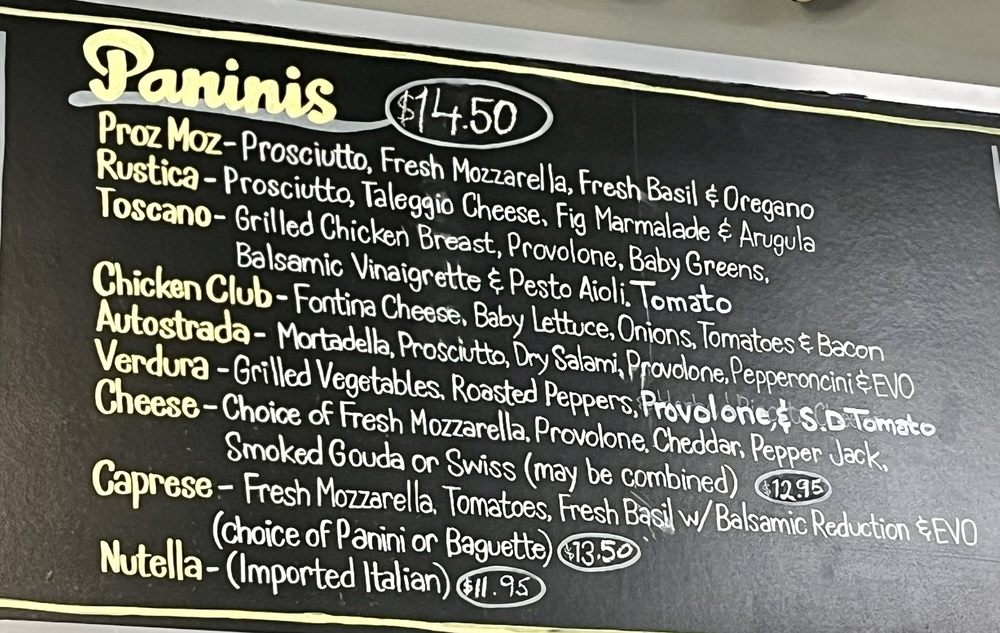 Paninis $14.50
Proz Moz - Prosciutto, Fresh Mozzarella, Fresh Basil & Oregano
Rustica - Prosciutto, Taleggio Cheese, Fig Marmalade & Arugula
Toscano - Grilled Chicken Breast, Provolone, Baby Greens,
Balsamic Vinaigrette & Pesto Aioli. Tomato
Chicken Club - Fontina Cheese, Baby Lettuce, Onions, Tomatoes & Bacon
Autostrada - Mortadella, Prosciutto, Dry Salami, Provolone, Pepperoncini & EVO
Verdura - Grilled Vegetables, Roasted Peppers, Provolone, & S.D Tomato
Cheese - Choice of Fresh Mozzarella, Provolone, Cheddar, Pepper Jack,
Smoked Gouda or Swiss (may be combined) $12.95
Caprese - Fresh Mozzarella, Tomatoes, Fresh Basil w/ Balsamic Reduction & EVO
(choice of Panini or Baguette) $13.50
Nutella - (Imported Italian) $11.95